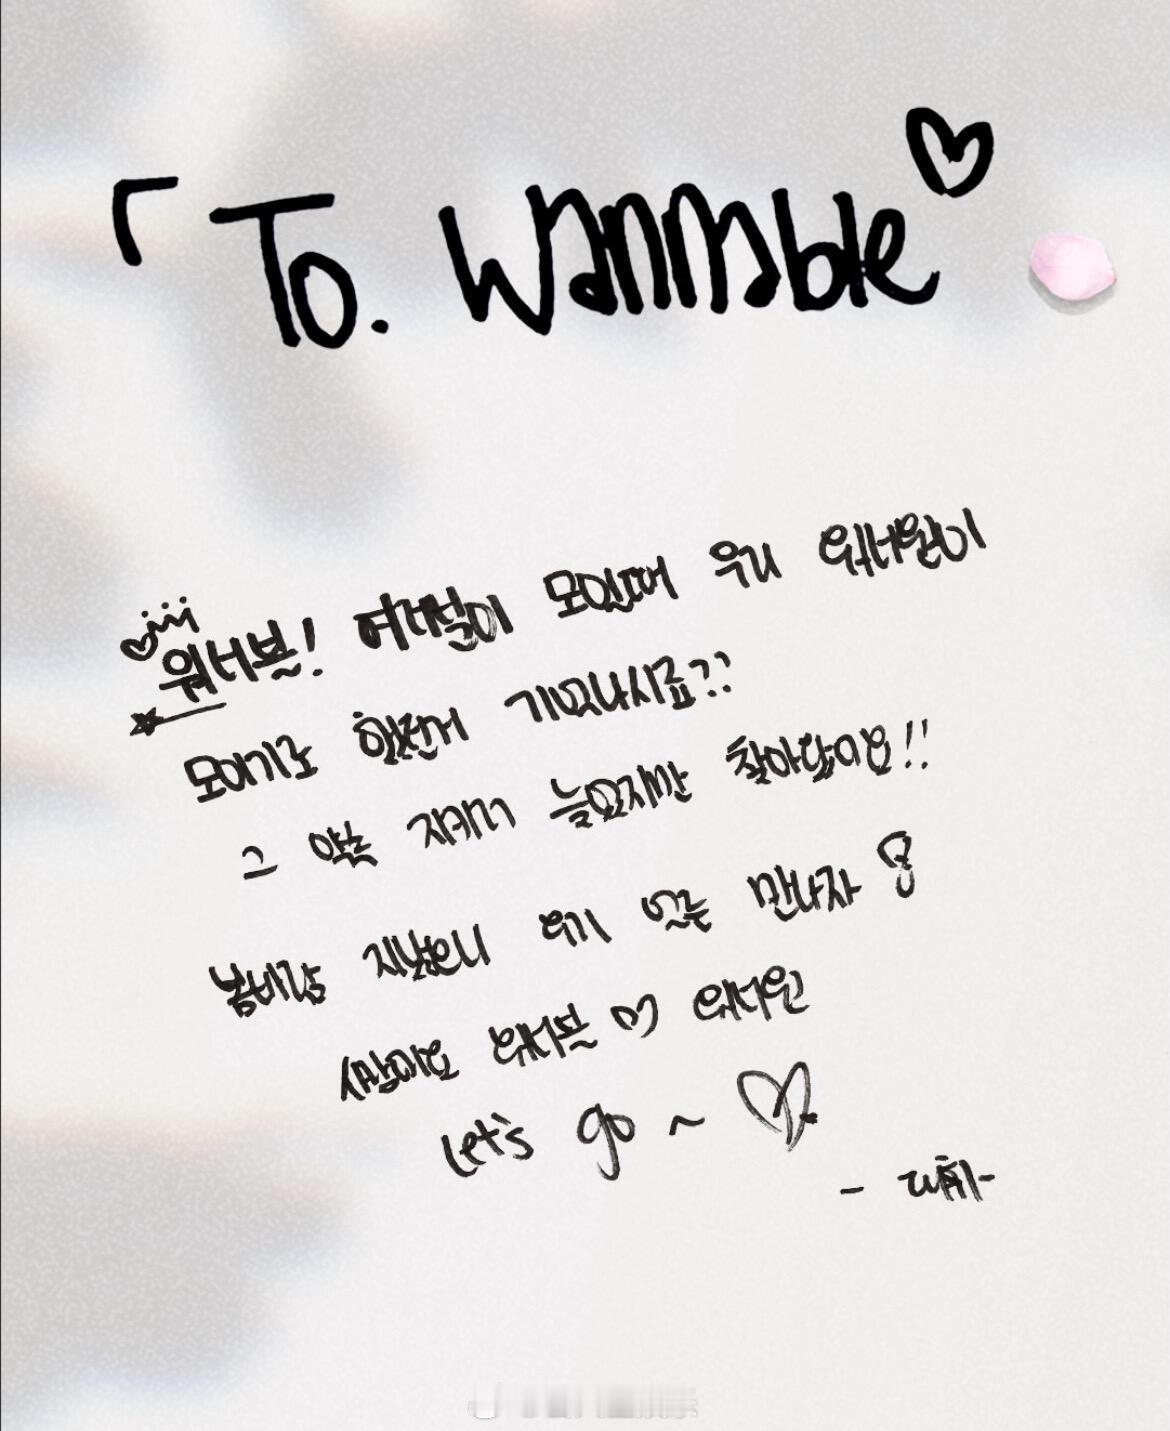 「To. Wannable♡
워너블! 여러분이 모일때 우리 워너원이
모이기로 했던거 기억나시죠??
그 약속 지키러 늦었지만 찾아왔어요!!
봄바람 지났으니 우리 있는 만나자
사랑해요 워너블 ♡ 워너원
Let's go ~ ♡
- 대휘 -